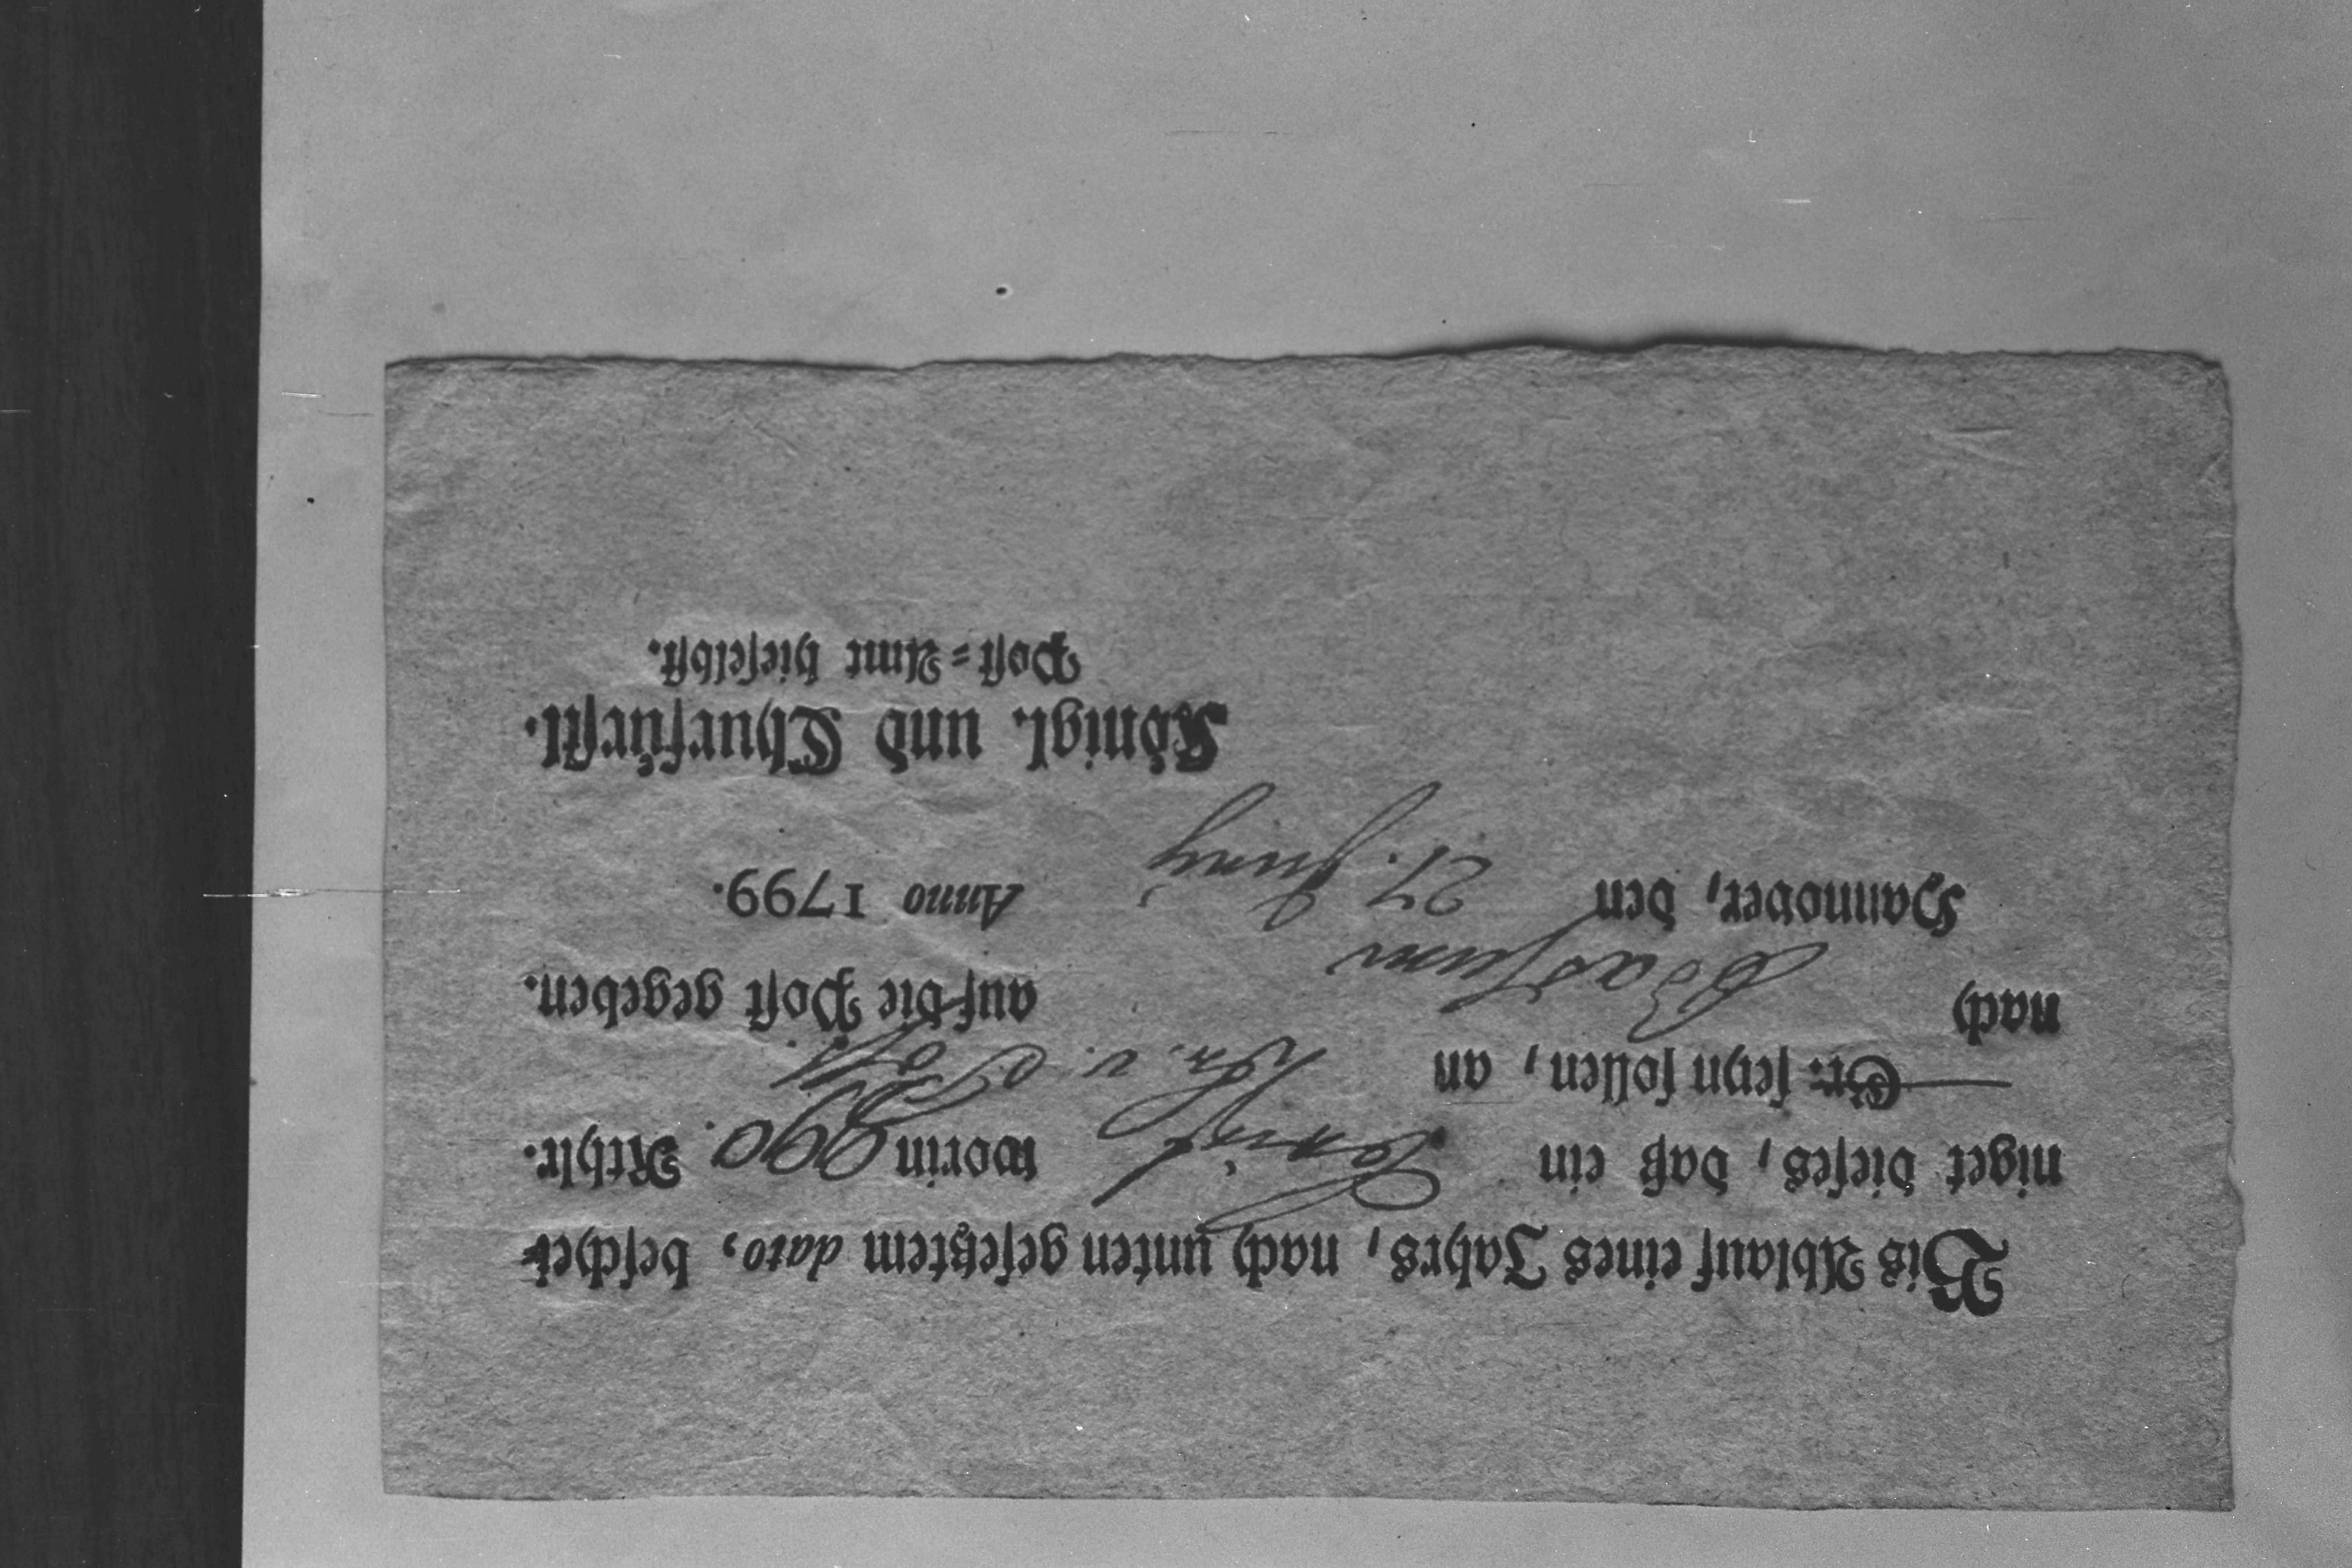 Bis Ablauf eines Jahrs, nach unten gesetztem dato, beschei-
niget dieses, daß ein worin 990. Rthlr.
Gr. seyn sollen, an Hn. v.
nach auf die Post gegeben.
Hannover, den 27. Juny Anno 1799.
Königl. und Churfürstl.
Post=Amt hieselbst.